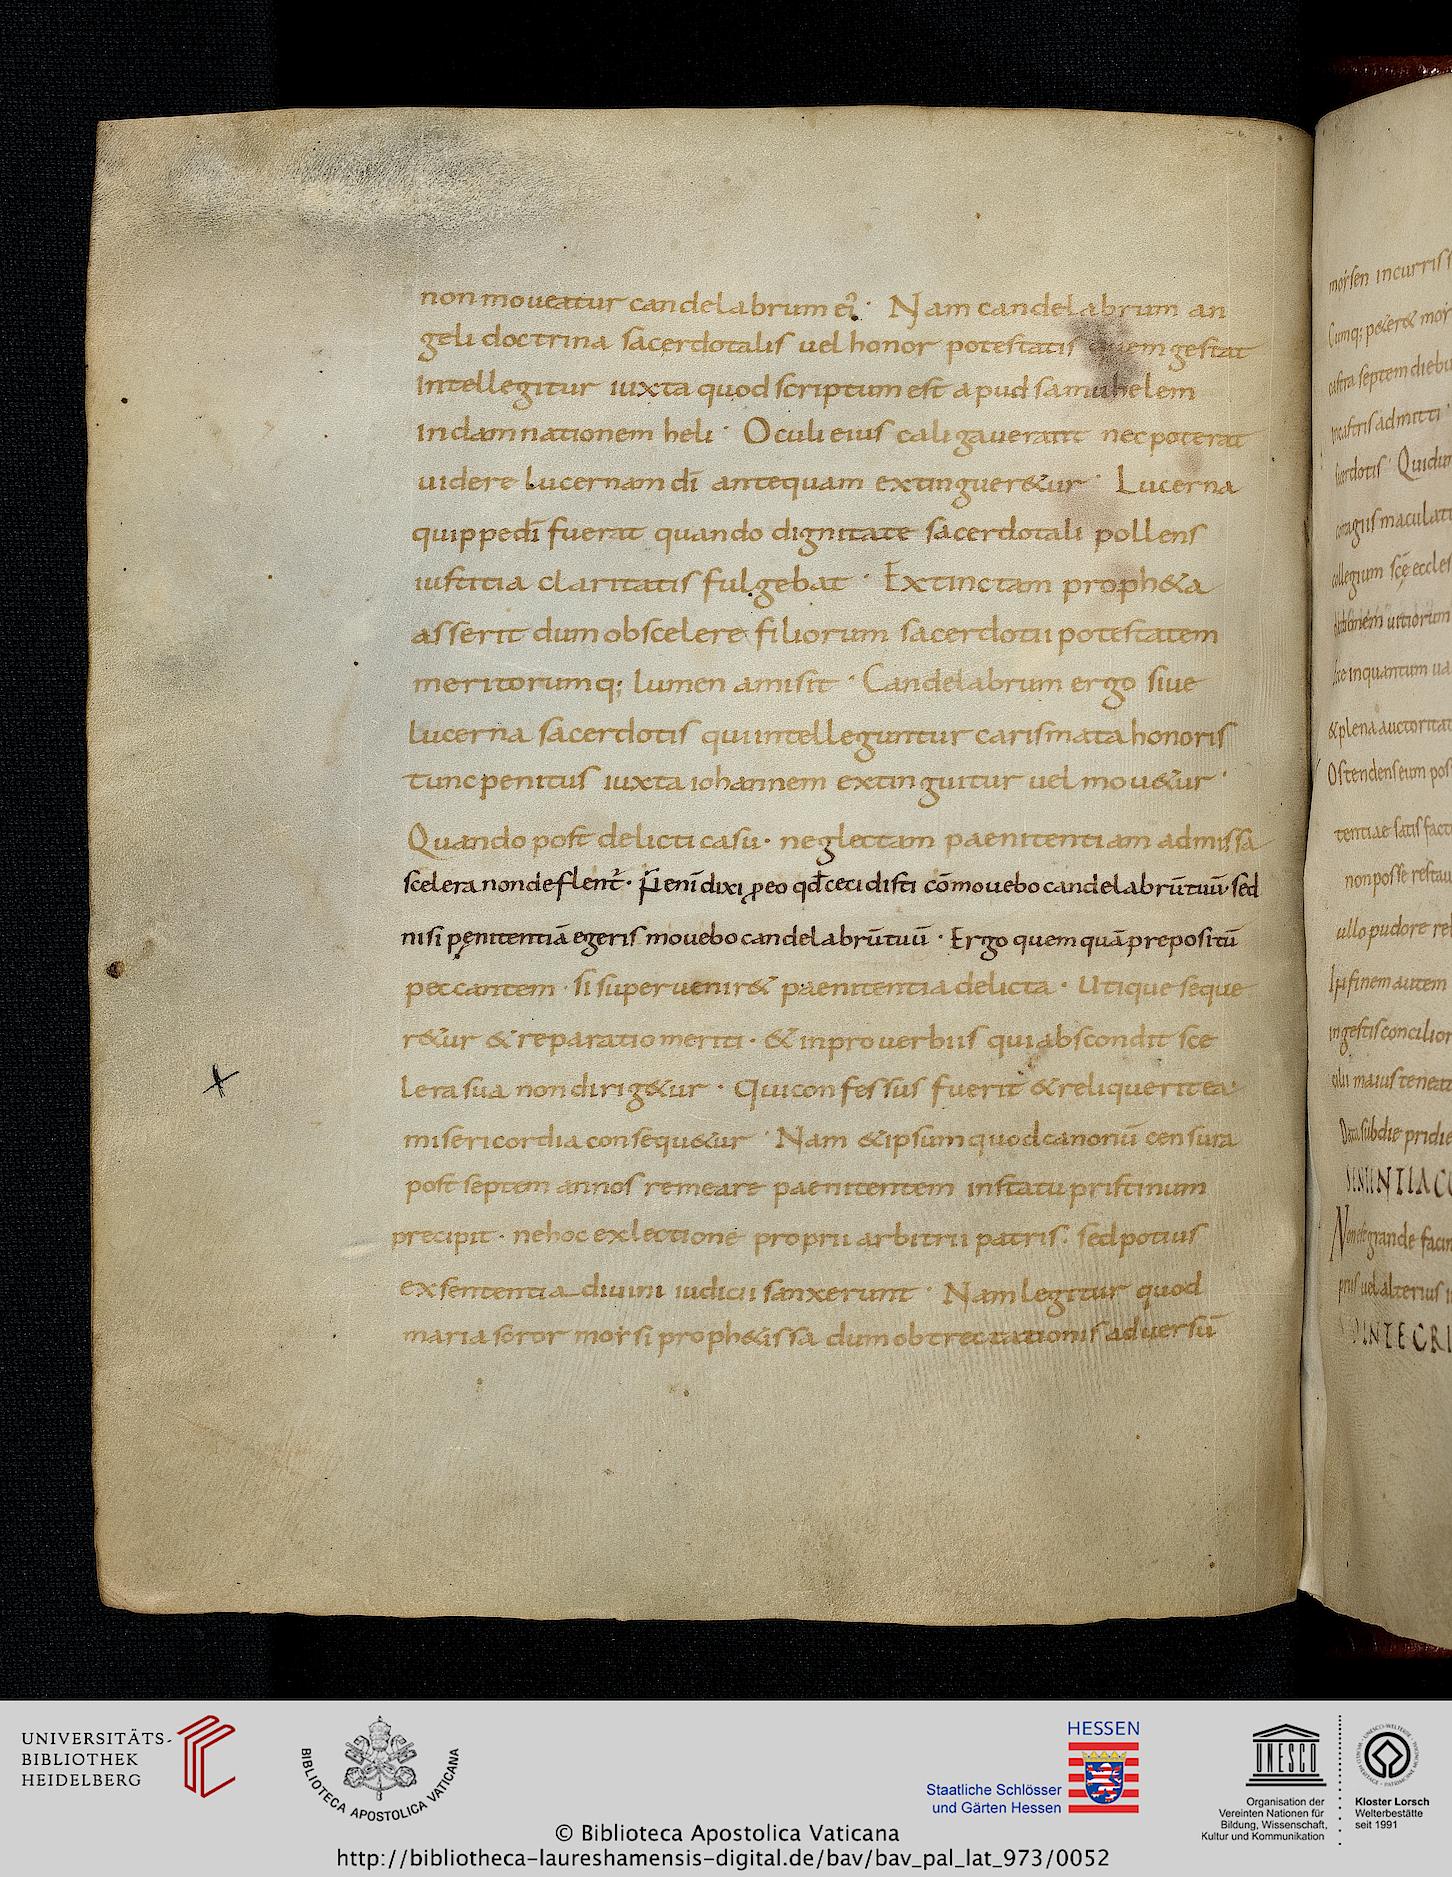 non moveatur candelabrum eĩ · Nam candelabrum an
geli doctrina sacerdotalis vel honor potestatis quem gestat
Intellegitur iuxta quod scriptum est apud samuhelem
In damnationem heli · Oculi eius caligaverant nec poterat
uidere lucernam dī antequam extingueretur · Lucerna
quippe dī fuerat quando dignitate sacerdotali pollens
iustitia claritatis fulgebat · Extinctam propheta
asserit dum ob scelere filiorum sacerdotii potestatem
meritorumq; lumen amisit · Candelabrum ergo siue
lucerna sacerdotis qui intelleguntur carismata honoris
tunc penitus iuxta iohannem extinguitur uel mouetur ·
Quando post delicti casu · neglectam paenitentiam admissa
scelera non deflent · enī dixi ꝓeo qđ cecidisti cōmouebo candelabrū tuū · sed
nisi pęnitentiā egeris mouebo candelabrū tuū · Ergo quemquā prepositū
peccantem · si superueniret paenitentia delicta · Utique seque
retur & reparatio meriti · & in prouerbiis qui abscondit sce
lera sua non dirigetur · Qui confessus fuerit & reliquerit ea
misericordia consequetur · Nam & ipsum quod canoniū censura
post septem annos remeare paenitentem in statu pristinum
precipit · ne hoc exlectione proprii arbitrii patris · sed potius
ex sententia diuini iudicii sanxerunt · Nam legitur quod
maria soror morsi prophetissa dum obtrectationis aduersū
morsen incurriss
castra septem diebu
collegium scę eccles
& plena auctoritat
Ostendens eum pos
tentiae satisfact
non posse restau
ullo pudore re
in gestis concilior
Data sub die pridie
UNIVERSITÄTS-
BIBLIOTHEK
HEIDELBERG
BIBLIOTECA APOSTOLICA VATICANA
HESSEN
Staatliche Schlösser
und Gärten Hessen
UNESCO
Organisation der
Vereinten Nationen für
Bildung, Wissenschaft,
Kultur und Kommunikation
Kloster Lorsch
Welterbestätte
seit 1991
© Biblioteca Apostolica Vaticana
http://bibliotheca-laureshamensis-digital.de/bav/bav_pal_lat_973/0052